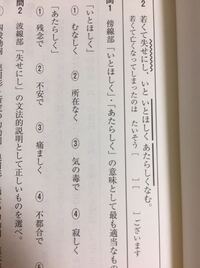 2 若くて失せにし、いといとほしくあたらしくなむ。
若くて亡くなってしまったのは たいそう〔 〕〔 〕ございます
問1 傍線部「いとほしく」・「あたらしく」の意味として最も適当なもの
「いとほしく」
① むなしく ② 所在なく ③ 気の毒で ④ 寂しく
「あたらしく」
① 残念で ② 不安で ③ 痛ましく ④ 不都合で
問2 波線部「失せにし」の文法的説明として正しいものを選べ。